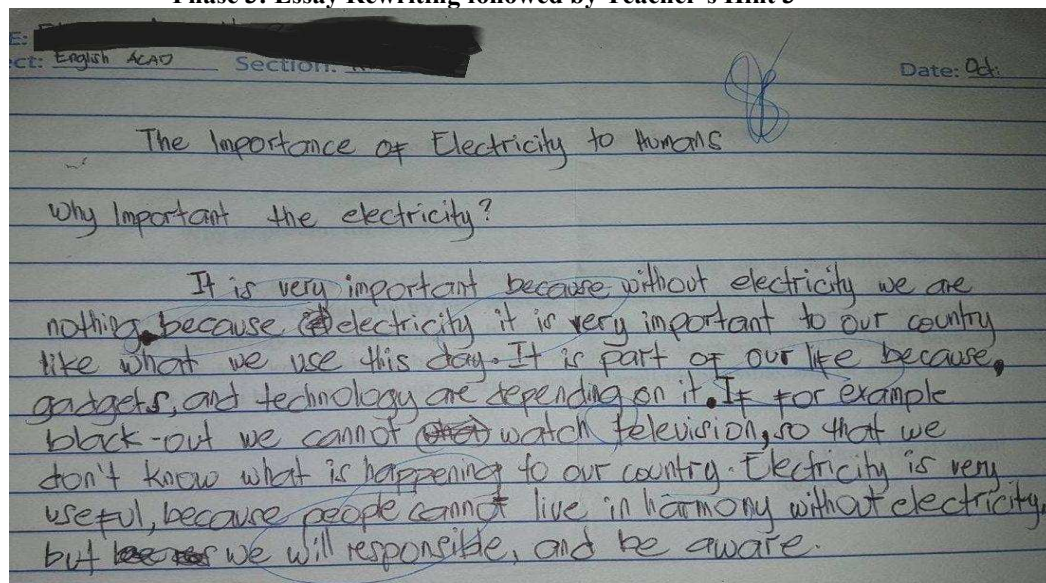 Phase 3: Essay Rewriting followed by Teacher's Hint 3
E:
ct: English ACAD Section: Date: Oct:
The Importance of Electricity to Humans
Why Important the electricity?
It is very important because without electricity we are
nothing. because electricity it is very important to our country
like what we use this day. It is part of our life because,
gadgets, and technology are depending on it. If for example
black-out we cannot watch television, so that we
don't know what is happening to our country. Electricity is very
useful, because people cannot live in harmony without electricity,
but we will responsible, and be aware.